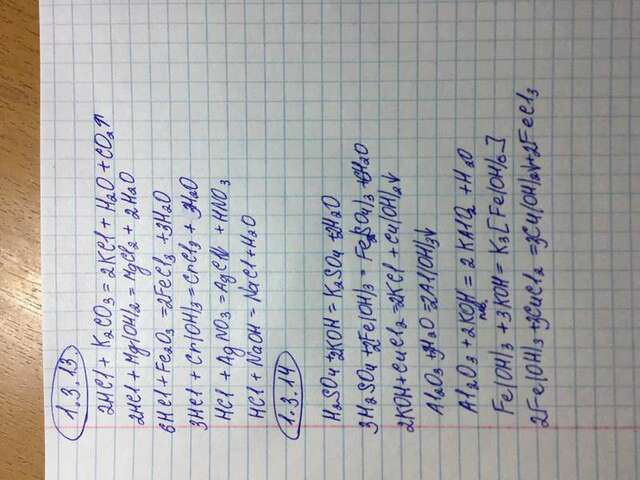 1.3.13.
2HCl + K2CO3 = 2KCl + H2O + CO2↑
2HCl + Mg(OH)2 = MgCl2 + 2H2O
6HCl + Fe2O3 = 2FeCl3 + 3H2O
3HCl + Cr(OH)3 = CrCl3 + 3H2O
HCl + AgNO3 = AgCl↓ + HNO3
HCl + NaOH = NaCl + H2O
1.3.14
H2SO4 + 2KOH = K2SO4 + 2H2O
3H2SO4 + 2Fe(OH)3 = Fe2(SO4)3 + 6H2O
2KOH + CuCl2 = 2KCl + Cu(OH)2↓
Al2O3 + 3H2O = 2Al(OH)3↓
Al2O3 + 2KOH = 2KAlO2 + H2O
Fe(OH)3 + 3KOH = K3[Fe(OH)6]
2Fe(OH)3 + 3CuCl2 = 3Cu(OH)2↓ + 2FeCl3